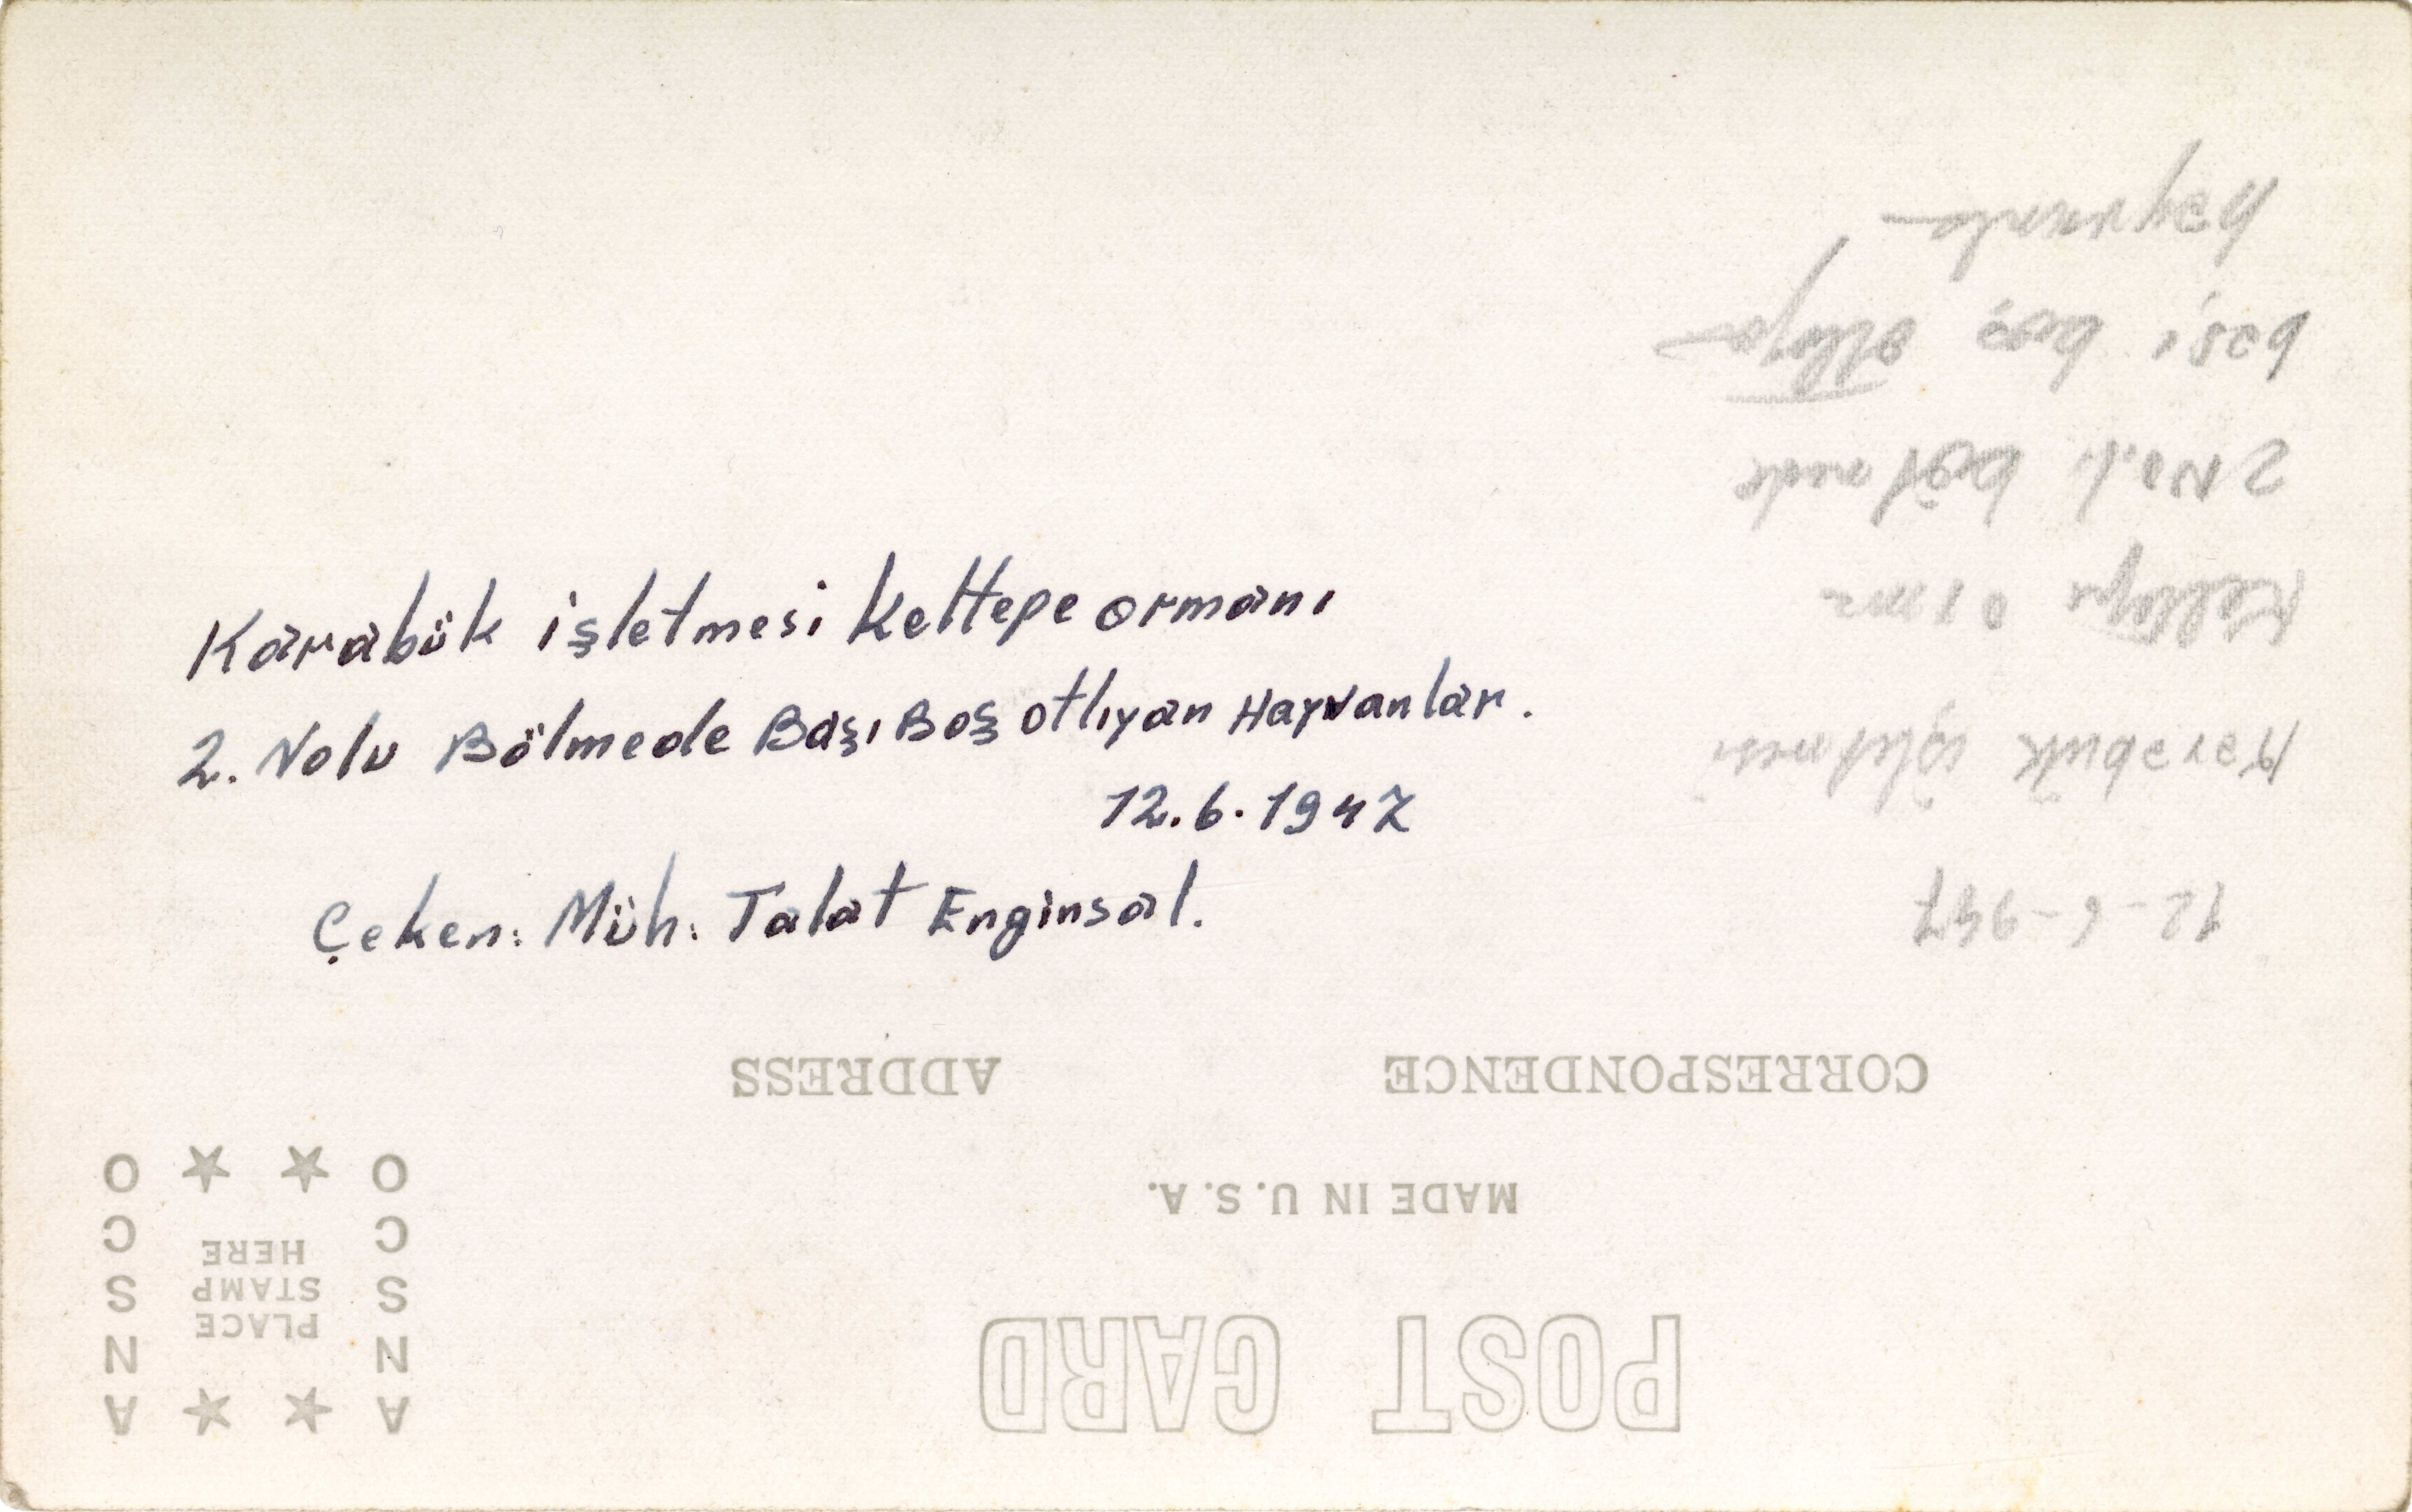 Karabük işletmesi Keltepe ormanı
2. Nolu Bölmede Başı Boş otlıyan Hayvanlar.
12.6.1947
Çeken: Müh: Talat Enginsal.
12-6-947
Karabük işletmesi
Keltepe
2 No.lı bölmede
başı boş
POST CARD
MADE IN U.S.A.
CORRESPONDENCE
ADDRESS
ANSCO
PLACE
STAMP
HERE
ANSCO